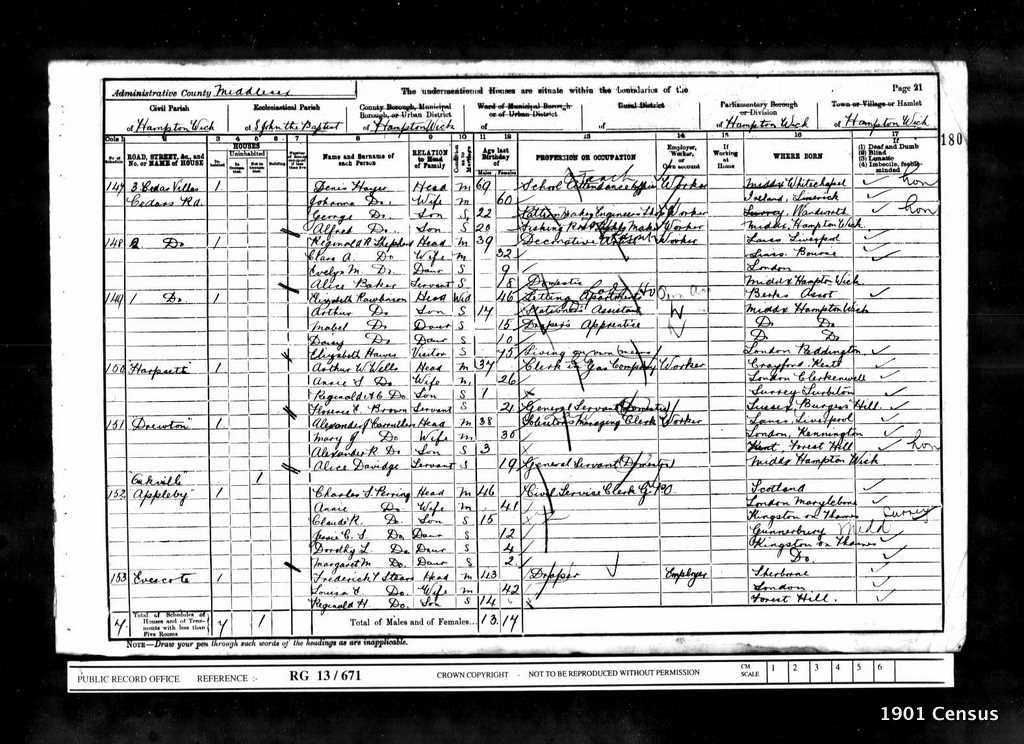 Administrative County Middlesex
The undermentioned Houses are situate within the boundaries of the
Page 21
Civil Parish
of Hampton Wick
Ecclesiastical Parish
of S John the Baptist
County Borough, Municipal Borough, or Urban District
of Hampton Wick
Ward of Municipal Borough or of Urban District
of
Rural District
of
Parliamentary Borough or Division
of Hampton Wick
Town or Village or Hamlet
of Hampton Wick
180
ROAD, STREET, &c., and No. or NAME of HOUSE
HOUSES
Uninhabited
Name and Surname of each Person
RELATION to Head of Family
Age last Birthday of
Males Females
PROFESSION OR OCCUPATION
Employer, Worker, or Own account
If Working at Home
WHERE BORN
If (1) Deaf and Dumb (2) Blind (3) Lunatic (4) Imbecile, feeble-minded
147 3 Cedar Villas 1 Denis Hayes Head M 69 School Attendance Officer Worker Middx Whitechapel
Cedars Rd. Johanna Do. Wife M 60 Ireland, Limerick
George Do. Son S 22 Worker Surrey, Wandsworth
Alfred Do. Son S 20 Fishing Rod Maker Worker Middx Hampton Wick
148 2 Do 1 Reginald R Head M 39 Decorative Worker Lancs Liverpool
Clara A. Do Wife M 32 Lincs. Bourne
Evelyn M. Do. Daur S 9 London
Alice Baker Servant S 18 Domestic Middx Hampton Wick
149 1 Do 1 Elizabeth Head Wid 46 Letting Apartments Own acc Berks Ascot
Arthur Do Son S 17 Stationers Assistant W Middx Hampton Wick
Mabel Do Daur S 15 Draper's Apprentice W Do Do
Daisy Do Daur S 10 Do Do
Elizabeth Hawes Visitor S 75 Living on own means London Paddington
1 Arthur W Wells Head M 37 Clerk in Gas Company Worker Crayford, Kent
Annie S Do Wife M 26 London Clerkenwell
Reginald A C Do Son S 1 Surrey Surbiton
Florence E. Brown Servant S 21 General Servant (Domestic) Sussex, Burgess Hill
151 1 Alexander J Carruthers Head M 38 Solicitors Managing Clerk Worker Lancs, Liverpool
Mary J Do Wife M 30 London, Kennington
Alexander R Do Son S 3 Kent, Forest Hill
Alice Davidge Servant S 19 General Servant Domestic Middx Hampton Wick
"Oakville" 1
152 Appleby 1 Charles S Perring Head M 46 Civil Service Clerk Scotland
Annie Do Wife M 41 London Marylebone
Claude R. Do. Son S 15 Kingston on Thames Surrey
Jessie C. S Do Daur S 12 Gunnersbury Midd
Dorothy L. Do Daur S 4 Kingston on Thames
Margaret M Do. Daur S 2 Do.
153 1 Frederick Head M 43 Draper Employer Sherborne
Louisa Do. Wife M 42 London
Reginald H. Do. Son S 14 Forest Hill.
7 Total of Schedules of Houses and of Tenements with less than Five Rooms 7 1 Total of Males and of Females... 13 17
NOTE—Draw your pen through such words of the headings as are inapplicable.
PUBLIC RECORD OFFICE REFERENCE :- RG 13/671 CROWN COPYRIGHT - NOT TO BE REPRODUCED WITHOUT PERMISSION CM SCALE 1 2 3 4 5 6
1901 Census